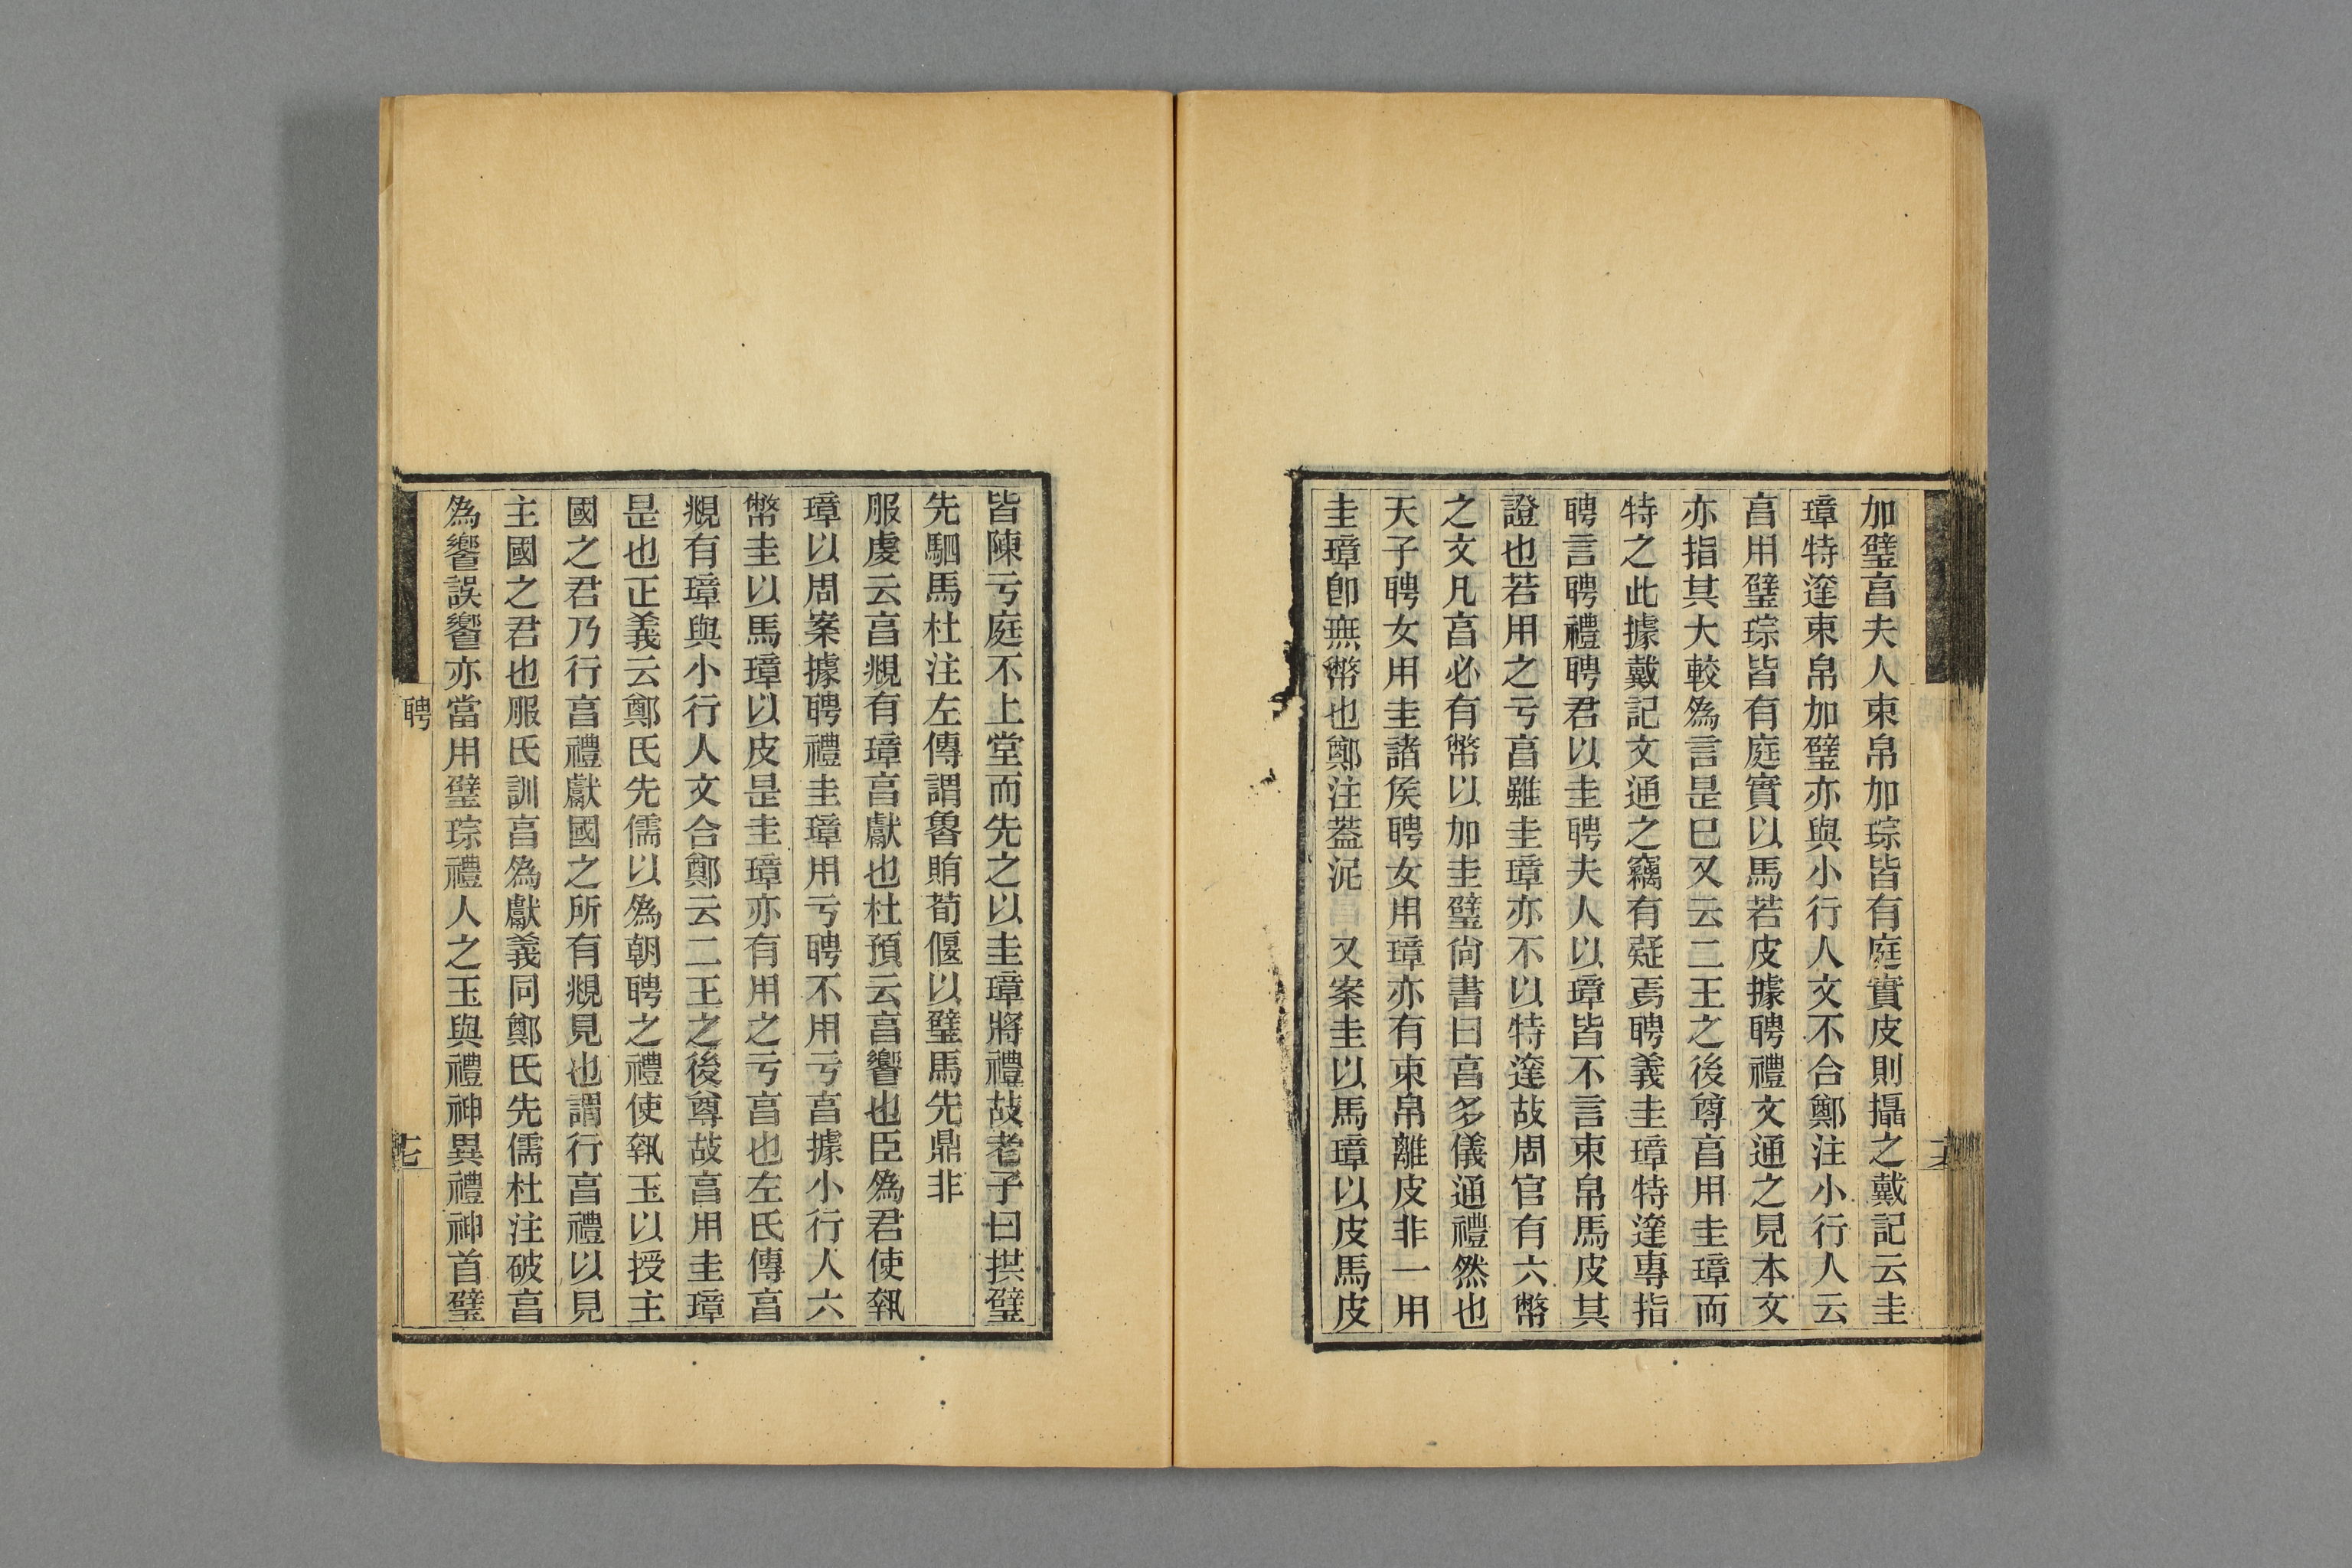 加璧亯夫人束帛加琮皆有庭實皮則攝之戴記云圭
璋特達束帛加璧亦與小行人文不合鄭注小行人云
亯用璧琮皆有庭實以馬若皮據聘禮文通之見本文
亦指其大較為言是巳又云二王之後尊亯用圭璋而
特之此據戴記文通之竊有疑焉聘義圭璋特達專指
聘言聘禮聘君以圭聘夫人以璋皆不言束帛馬皮其
證也若用之亏亯雖圭璋亦不以特達故周官有六幣
之文凡亯必有幣以加圭璧尙書曰亯多儀通禮然也
天子聘女用圭諸矦聘女用璋亦有束帛離皮非一用
圭璋卽無幣也鄭注葢泥 又案圭以馬璋以皮馬皮
皆陳亏庭不上堂而先之以圭璋將禮故老子曰拱璧
先駟馬杜注左傳謂魯賄荀偃以璧馬先鼎非
服虔云亯覜有璋亯獻也杜預云亯響也臣為君使執
璋以周案據聘禮圭璋用亏聘不用亏亯據小行人六
幣圭以馬璋以皮是圭璋亦有用之亏亯也左氏傳亯
覜有璋與小行人文合鄭云二王之後尊故亯用圭璋
是也正義云鄭氏先儒以為朝聘之禮使執玉以授主
國之君乃行亯禮獻國之所有覜見也謂行亯禮以見
主國之君也服氏訓亯為獻義同鄭氏先儒杜注破亯
為響誤響亦當用璧琮禮人之玉與禮神異禮神首璧
聘
十七